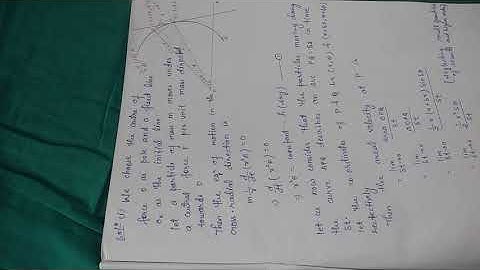 Sol.n (1) We choose the centre of
force O as pole and a fixed line
Ox as the initial line.
Let a particle of mass m moves under
a central force F per unit mass directed
towards O
Then the eqn of motion in the
cross-radial direction is
m 1/r d/dt (r²θ̇) = 0
⇒ d/dt (r²θ̇) = 0
⇒ r²θ̇ = constant = h (say) — ①
Let us now consider that the particle moving along
the curve describes an arc PQ in time
δt.
Let the co-ordinate of P & Q be (r, θ) & (r+δr, θ+δθ)
respectively
Then the areal velocity at P is
= lim δt→0 area OPQ / δt
= lim δt→0
= lim δt→0 ½ r (r+δr) sin δθ / δt
= lim δt→0 ½ r² δθ / δt
[neglecting small quantities
of second and higher order]